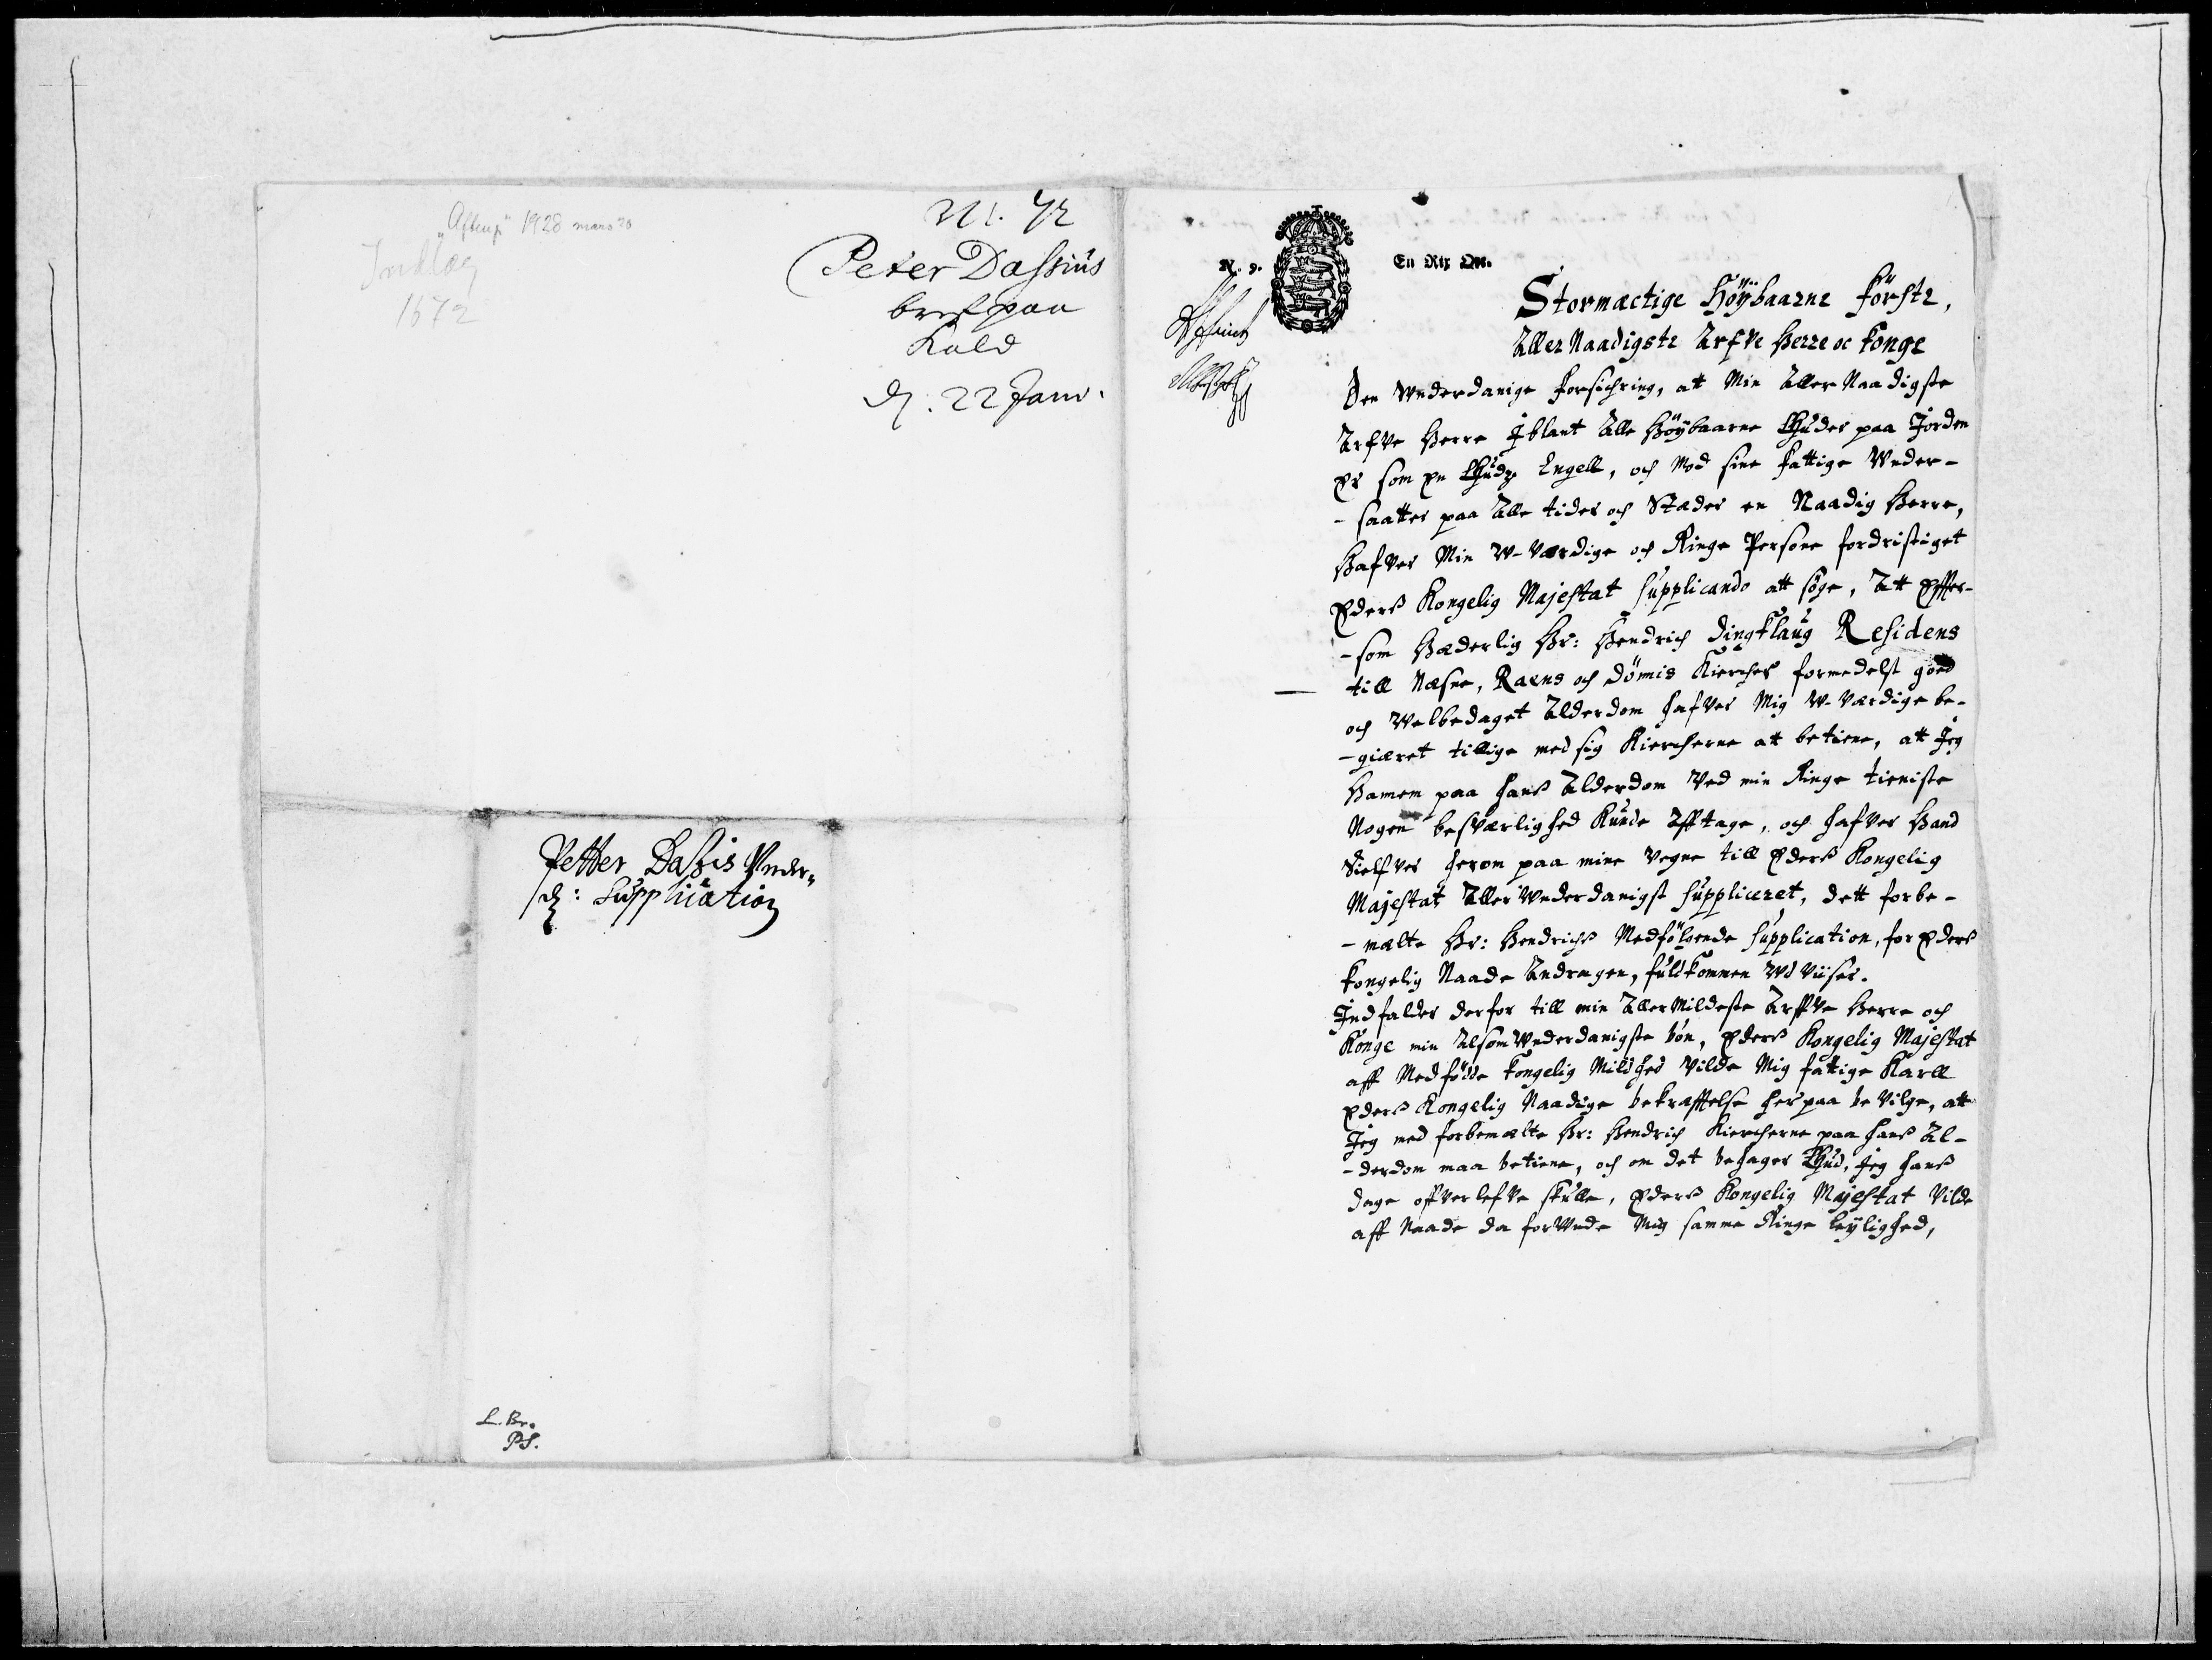 "Aftryk" 1928 mars 20
Indlæg
1672
Nr. 42
Peter Dassius
bref paa
Kald
d. 22 Janv.
Petter Daßis Under„
d: Supplication
L. Br.
PS.
N. 9.
En Rix Ort.
Stormæctige Höÿbaarne Förste,
Aller Naadigste Arfve Herre oc Konge
Den Wnderdanige forsichring, att Min Aller Naadigste
Arfve Herre Iblant Alle Höÿbaarne Guder paa Jorden
Er som en Gudz Engell, och Mod sine fattige Wnder-
-saatter paa Alle tider och Stæder en Naadig Herre,
Hafver Min W-Værdige och Ringe Persone fordristiget
Ederß Kongelig Majestat Supplicando att söge, Att Effter-
-som Hæderlig Hr: Hendrich Dingklaug Residens
till Næsne, Raens och Dömis Kiercher formedelst goed
och Velbedaget Alderdom hafver Mig W-Værdige be-
-giæret tillige med sig Kiercherne att betiene, att Jeg
Hannem paa hans Alderdom Ved min Ringe tieniste
Nogen besværlighed Kunde Afftage, och hafver Hand
Sielfver herom paa mine Vegne till Ederß Kongelig
Majestat Aller Wnderdanigst Suppliceret, dett forbe-
-mælte Hr: Hendrichß Medfölgende Supplication, for Ederß
Kongelig Naade Andragen, fuldkommen Wdviiser.
Indfalder derfor till min Aller Mildeste Arffve Herre och
Konge min Alsom Wnderdanigste bön, Ederß Kongelig Majestat
aff Medfödde Kongelig Mildhed Vilde Mig fattige Karll
Ederß Kongelig Naadige bekrafftelse her paa bevilge, att
Jeg med forbemælte Hr: Hendrich Kiercherne paa hans Al-
-derdom maa betiene, och om det behager Gud, Jeg hans
dage offverlefve skulle, Ederß Kongelig Majestat Vilde
aff Naade da forWnde Mig samme Ringe leÿlighed,